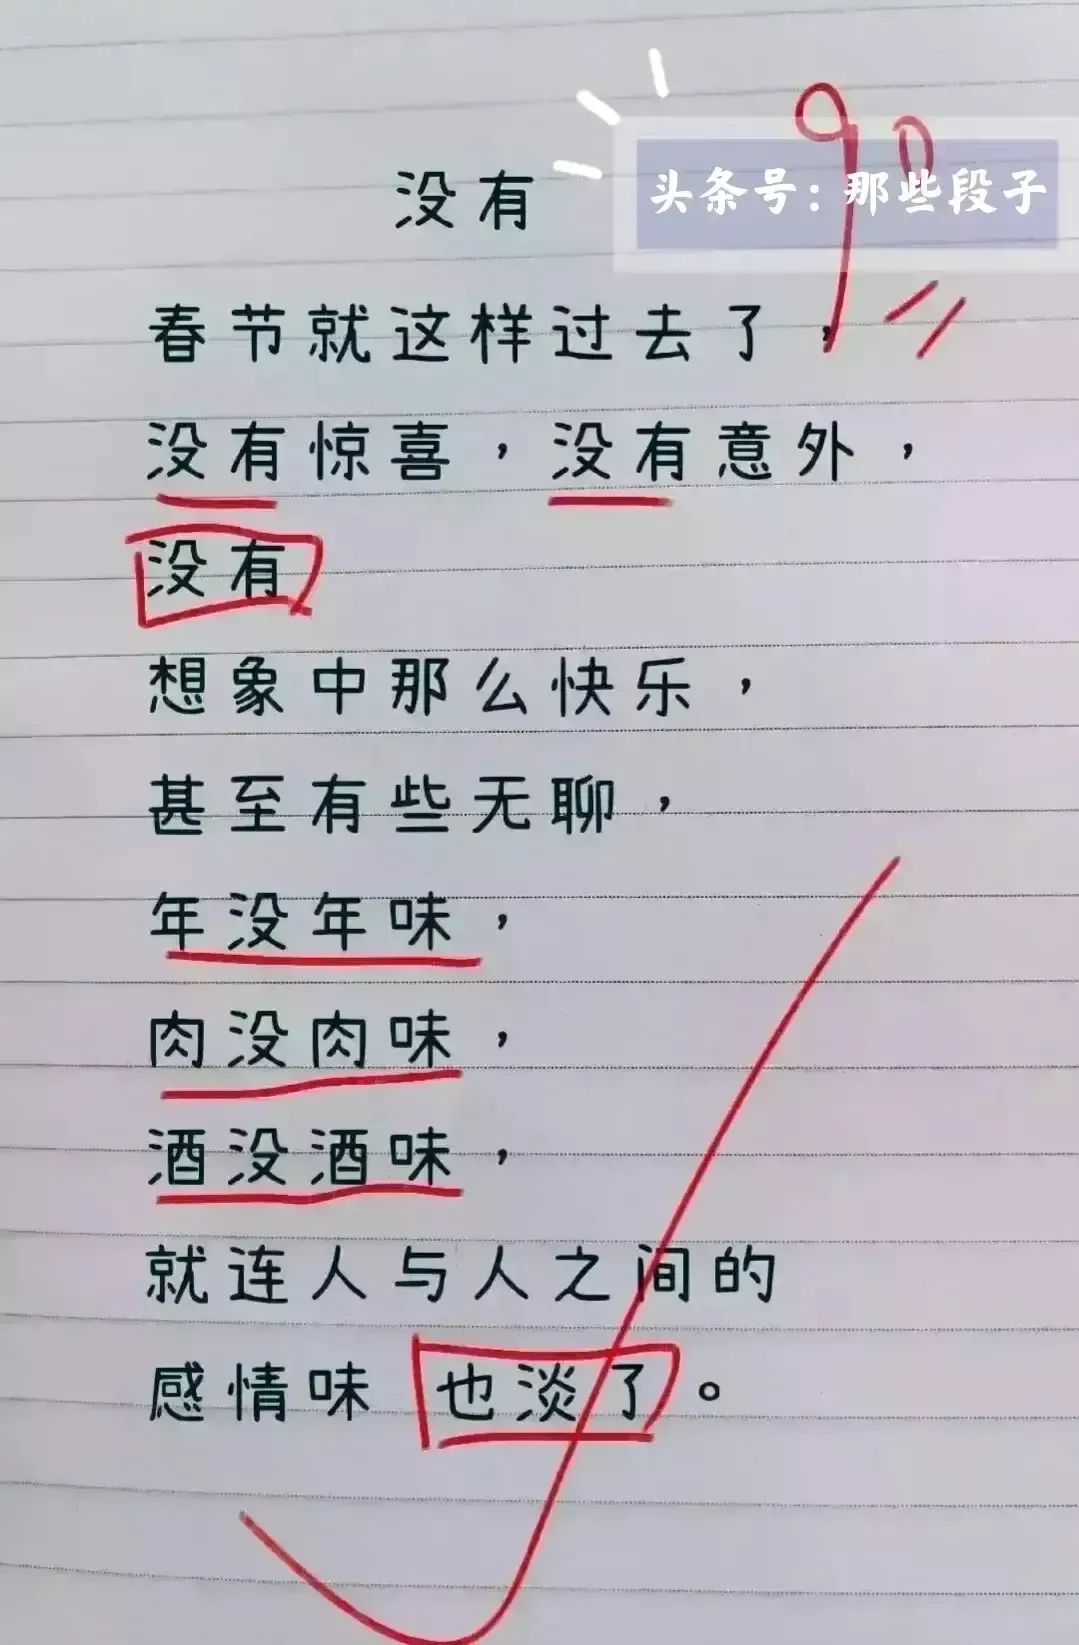 90
头条号：那些段子
没有
春节就这样过去了，
没有惊喜，没有意外，
没有
想象中那么快乐，
甚至有些无聊，
年没年味，
肉没肉味，
酒没酒味，
就连人与人之间的
感情味也淡了。